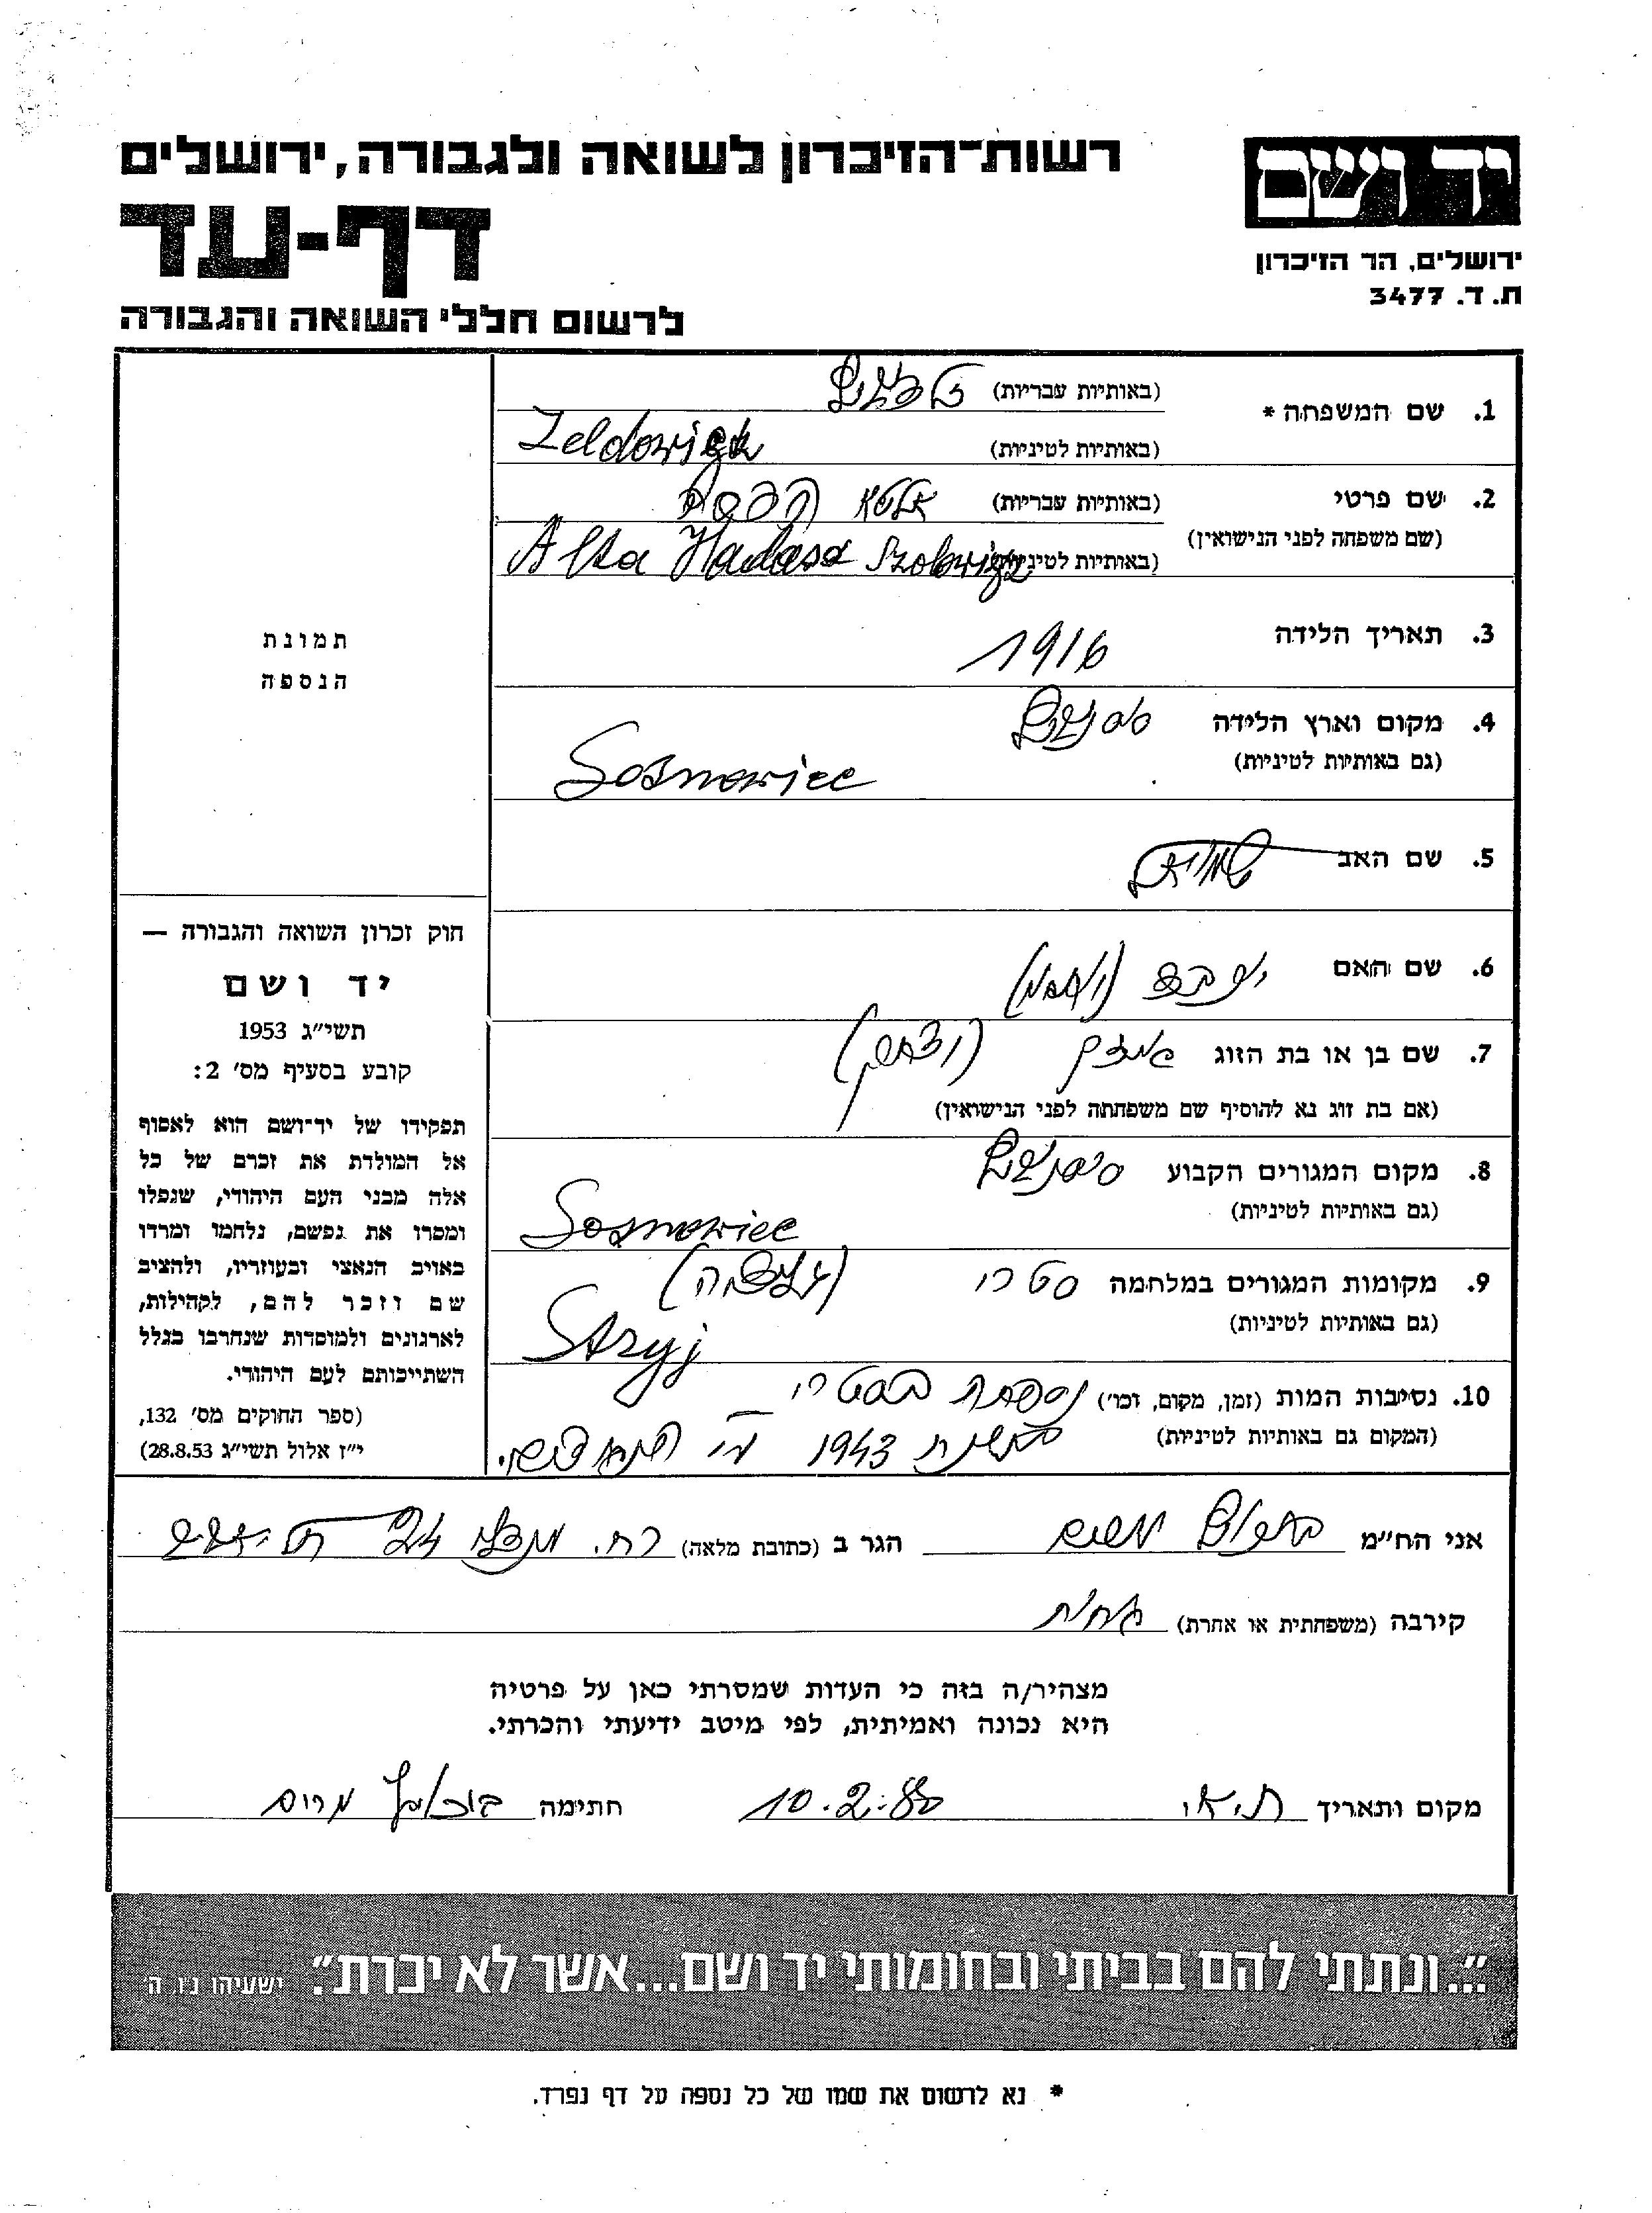 רשות־הזיכרון לשואה ולגבורה, ירושלים
יד ושם
דף-עד
ירושלים, הר הזיכרון
ת. ד. 3477
לרשום חללי השואה והגבורה
1. שם המשפחה * (באותיות עבריות)
(באותיות לטיניות) Zeldowicz
2. שם פרטי (באותיות עבריות) אלטא הדסה
(שם משפחה לפני הנישואין) (באותיות לטיניות) Alta Hadasa
3. תאריך הלידה 1916
4. מקום וארץ הלידה
(גם באותיות לטיניות) Sosnowiec
5. שם האב
6. שם האם
7. שם בן או בת הזוג
(אם בת זוג נא להוסיף שם משפחתה לפני הנישואין)
8. מקום המגורים הקבוע
(גם באותיות לטיניות) Sosnowiec
9. מקומות המגורים במלחמה סטרי
(גם באותיות לטיניות) Stryj
10. נסיבות המות (זמן, מקום, וכו') נספתה בסטרי
(המקום גם באותיות לטיניות) בשנת 1943
תמונת
הנספה
חוק זכרון השואה והגבורה —
יד ושם
תשי"ג 1953
קובע בסעיף מס' 2:
תפקידו של יד־ושם הוא לאסוף
אל המולדת את זכרם של כל
אלה מבני העם היהודי, שנפלו
ומסרו את נפשם, נלחמו ומרדו
באויב הנאצי ובעוזריו, ולהציב
שם וזכר להם, לקהילות,
לארגונים ולמוסדות שנחרבו בגלל
השתייכותם לעם היהודי.
(ספר החוקים מס' 132,
י"ז אלול תשי"ג 28.8.53)
אני הח"מ הגר ב (כתובת מלאה) רח. 24
קירבה (משפחתית או אחרת) אחות
מצהיר/ה בזה כי העדות שמסרתי כאן על פרטיה
היא נכונה ואמיתית, לפי מיטב ידיעתי והכרתי.
מקום ותאריך 10.2.80 חתימה מרים
"...ונתתי להם בביתי ובחומותי יד ושם...אשר לא יכרת". ישעיהו נ"ו, ה'
* נא לרשום את שמו של כל נספה על דף נפרד.